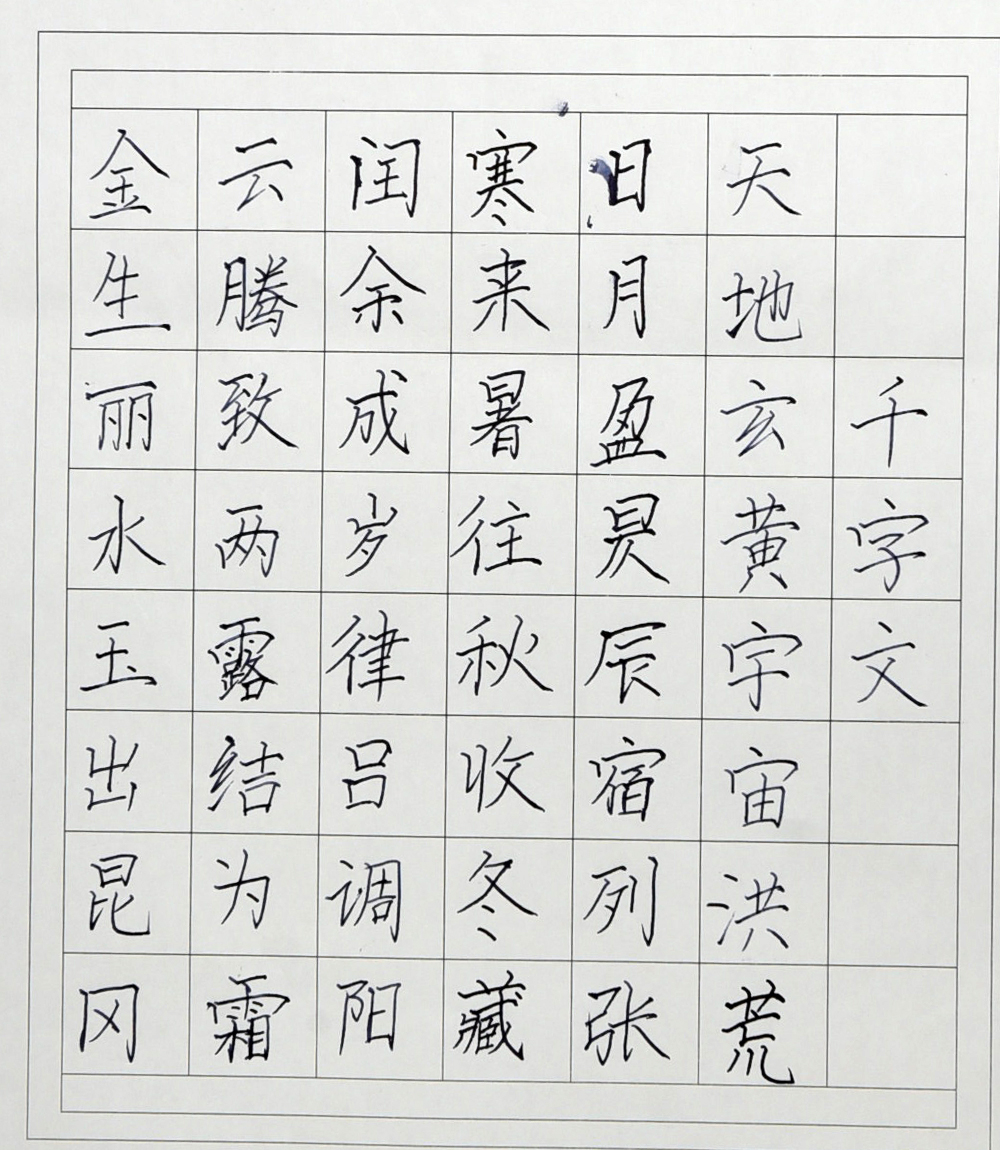 千字文
天地玄黄宇宙洪荒
日月盈昃辰宿列张
寒来暑往秋收冬藏
闰余成岁律吕调阳
云腾致两露结为霜
金生丽水玉出昆冈